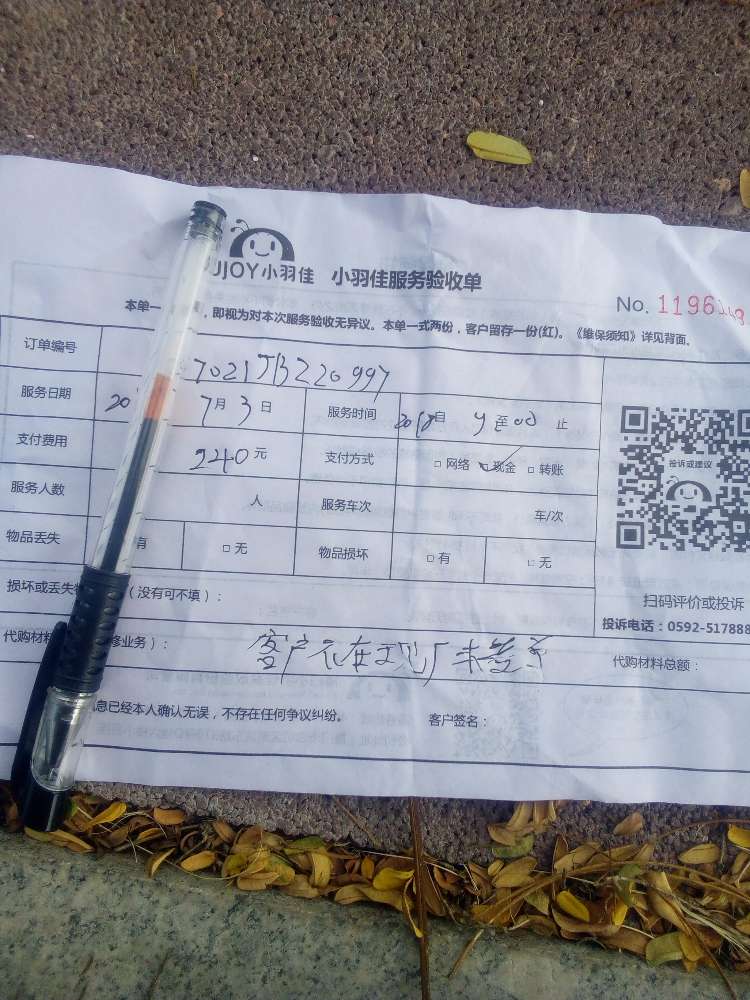 UJOY小羽佳 小羽佳服务验收单
No. 1196
本单一 ，即视为对本次服务验收无异议。本单一式两份，客户留存一份(红)。《维保须知》详见背面。
订单编号 7021JB220997
服务日期 20 7月3日 服务时间 自 至 止
支付费用 240元 支付方式 □ 网络 □ 现金 □ 转账
投诉或建议
服务人数 人 服务车次 车/次
物品丢失 有 □ 无 物品损坏 □ 有 □ 无
扫码评价或投诉
损坏或丢失 （没有可填）：
投诉电话：0592-517888
代购材料 修业务）： 客户不在现厂未签字 代购材料总额：
息已经本人确认无误，不存在任何争议纠纷。 客户签名：